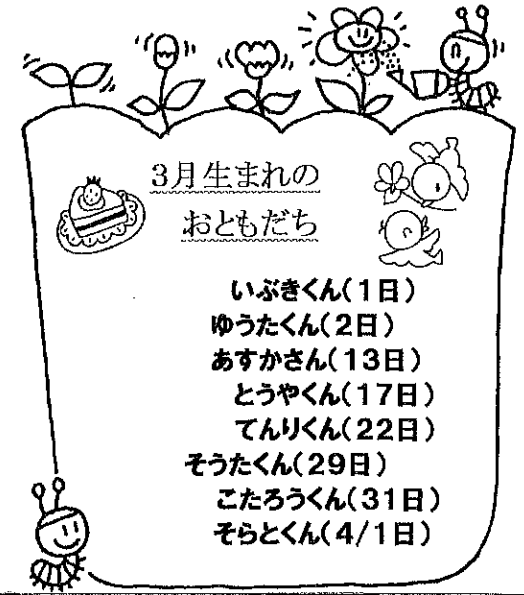 3月生まれの
おともだち
いぶきくん(1日)
ゆうたくん(2日)
あすかさん(13日)
とうやくん(17日)
てんりくん(22日)
そうたくん(29日)
こたろうくん(31日)
そらとくん(4/1日)